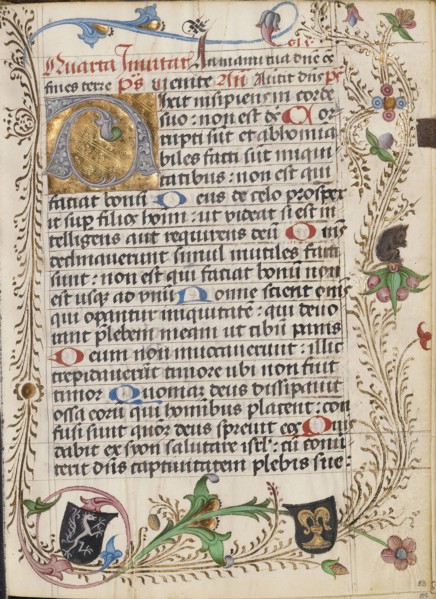 Quarta Invitat In manu tua dne o
fines terre ps venite An Avtit dns ps
Dixit insipiens in corde
suo : non est de Cor
rupti sut et abhomia
biles facti sut in iniqui
tatibus : non est qui
faciat bonu Deus de celo prospex
it sup filios hoim : ut videat si est in
telligens aut requirens deu Oms
declinaverunt simul inutiles facti
sunt : non est qui faciat bonu non
est usq ad unu Nonne scient oms
qui opantur iniquitate : qui devo
rant plebem meam ut cibu panis
Deum non invocaverunt : illic
trepidaverut timore ubi non fuit
timor Quoniam deus dissipavit
ossa eoru qui hominibus placent : con
fusi sunt qnor deus sprevit eos Quis
dabit ex syon salutare isrl : cu conv
terit dns captivitatem plebis sue :